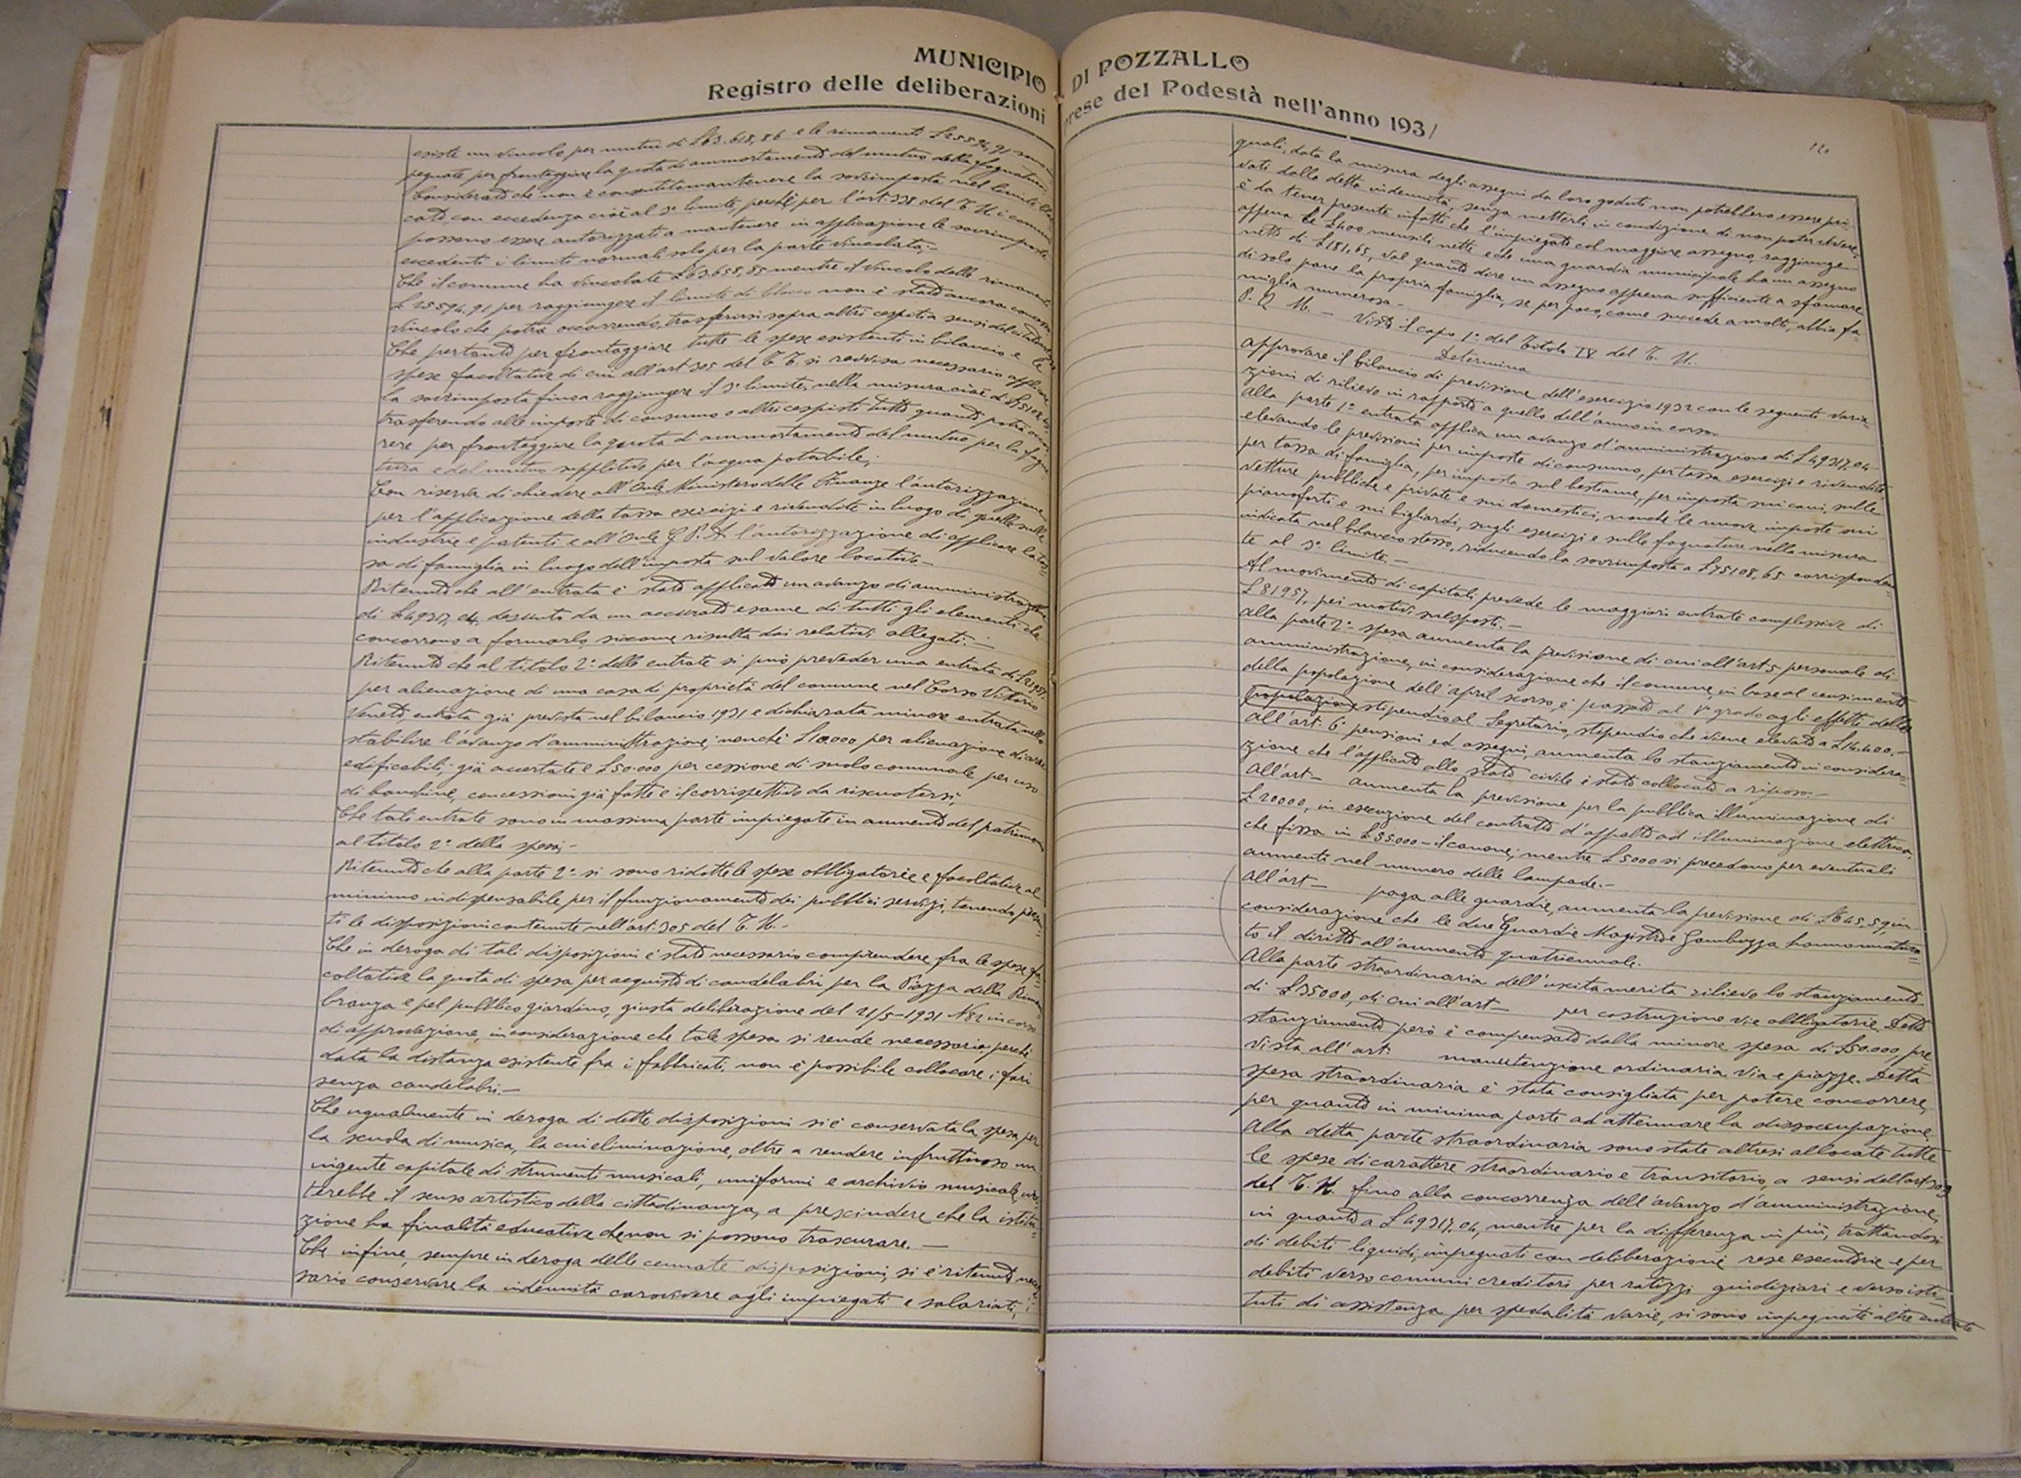 MUNICIPIO DI POZZALLO
Registro delle deliberazioni prese del Podestà nell'anno 1931
esiste un vincolo per mutui di £ 63.658,86 e le rimanenti £ 25594,91
pegnate per fronteggiare la quota di ammortamento del mutuo della fognatura
Considerato che non è consentito mantenere la sovrimposta nel limite
cato con eccedenza cioè al 3° limite, perchè per l'art. 338 del T. U. i comuni
possono essere autorizzati a mantenere in applicazione le sovrimposte
eccedenti i limiti normali solo per la parte vincolata;-
Che il comune ha vincolate £ 63.658,85 mentre il vincolo delle rimanenti
£ 25594,91 per raggiungere il limite di blocco non è stato ancora concesso
vincolo che potrà occorrendo, trasferirsi sopra altri cespiti a sensi del
Che pertanto per fronteggiare tutte le spese esistenti in bilancio e le
spese facoltative di cui all'art. 305 del T. U. si ravvisa necessario applicare
la sovrimposta fino a raggiungere il 3° limite, nella misura cioè di £ 35108,65
trasferendo alle imposte di consumo o altri cespiti tutto quanto potrà occor
rere per fronteggiare la quota di ammortamento del mutuo per la fogna
tura e del mutuo suppletivo per l'acqua potabile;
Con riserva di chiedere all'On.le Ministero delle Finanze l'autorizzazione
per l'applicazione della tassa esercizi e rivendite in luogo di quella sulle
industrie e patenti e all'On.le G. P. A. l'autorizzazione di applicare la tas=
sa di famiglia in luogo dell'imposta sul valore locativo.-
Ritenuto che all'entrata è stato applicato un avanzo di amministrazione
di £ 49317,04 desunto da un accurato esame di tutti gli elementi che
concorrono a formarlo, siccome risulta dai relativi allegati.-
Ritenuto che al titolo 2° delle entrate si può preveder una entrata di £ 21957
per alienazione di una casa di proprietà del comune nel Corso Vittorio
Veneto entrata già prevista nel bilancio 1931 e dichiarata minore entrata nello
stabilire l'avanzo d'amministrazione; nonchè £ 10.000 per alienazione di aree
edificabili, già accertate e £ 50.000 per cessione di suolo comunale per uso
di banchine, concessioni già fatte e il corrispettivo da riscuotersi;
Che tali entrate sono in massima parte impiegate in aumento del patrimonio
al titolo 2° della spesa;-
Ritenuto che alla parte 2° si sono ridotte le spese obbligatorie e facoltative al
minimo indispensabile per il funzionamento dei pubblici servizi, tenendo presen
ti le disposizioni contenute nell'art. 305 del T. U.-
Che in deroga di tali disposizioni è stato necessario comprendere fra le spese fa=
coltative la quota di spesa per acquisto di candelabri per la Piazza della Rimem
branza e pel pubblico giardino, giusta deliberazione del 21/5-1931 N 82 in corso
di approvazione, in considerazione che tale spesa si rende necessaria perchè
data la distanza esistente fra i fabbricati non è possibile collocare i fari
senza candelabri.-
Che ugualmente in deroga di dette disposizioni si è conservata la spesa per
la scuola di musica, la cui eliminazione, oltre a rendere infruttuoso un
ingente capitale di strumenti musicali, uniformi e archivio musicale,
terebbe il senso artistico della cittadinanza, a prescindere che la istitu=
zione ha finalità educative che non si possono trascurare.-
Che infine, sempre in deroga delle cennate disposizioni, si è ritenuto neces
sario conservare la indennità caroviveri agli impiegati e salariati, i
quali, data la misura degli assegni da loro goduti non potrebbero essere pri=
vati dalla detta indennità, senza metterli in condizione di non poter vivere;
è da tener presente infatti che l'impiegato col maggiore assegno, raggiunge
appena le £ 400 mensili nette e che una guardia municipale ha un assegno
netto di £ 181,65, val quanto dire un assegno appena sufficiente a sfamare
di solo pane la propria famiglia, se per poco, come succede a molti, abbia fa=
miglia numerosa.-
P. Q. M.- Visto il capo 1° del Titolo IX del T. U.
Determina
approvare il bilancio di previsione dell'esercizio 1932 con le seguenti varia=
zioni di rilievo in rapporto a quello dell'anno in corso.
Alla parte 1° entrata applica un avanzo d'amministrazione di £ 49317,04
elevando le previsioni per imposte di consumo, per tassa esercizi e rivendite
per tassa di famiglia, per imposta sul bestiame, per imposta sui cani, sulle
vetture pubbliche e private e sui domestici, nonchè le nuove imposte sui
pianoforti e sui bigliardi, sugli esercizi e sulle fognature nella misura
indicata nel bilancio stesso, riducendo la sovrimposta a £ 35108,65 corrisponden
te al 3° limite.-
Al movimento di capitali prevede le maggiori entrate complessive di
£ 81957, pei motivi suesposti.-
Alla parte 2° spesa aumenta la previsione di cui all'art. 5 personale di
amministrazione, in considerazione che il comune, in base al censimento
della popolazione dell'april scorso, è passato al V° grado agli effetti dello
popolazione stipendio al Segretario, stipendio che viene elevato a £ 14400.-
All'art. 6 pensioni ed assegni, aumenta lo stanziamento in considera=
zione che l'applicato allo stato civile è stato collocato a riposo.-
All'art- aumenta la previsione per la pubblica illuminazione di
£ 20000, in esecuzione del contratto d'appalto ad illuminazione elettrica,
che fissa in £ 35.000- il canone, mentre £ 5000 si precedono per eventuali
aumenti nel numero delle lampade.-
All'art- paga alle guardie, aumenta la previsione di £ 645,59 in
considerazione che le due Guardie Magistrì e Gambuzza hanno matura=
to il diritto all'aumento quatriennale.
Alla parte straordinaria dell'uscita merita rilievo lo stanziamento
di £ 35000, di cui all'art- per costruzione vie obbligatorie. Detto
stanziamento però è compensato dalla minore spesa di £ 50.000 pre
vista all'art. manutenzione ordinaria vie e piazze. Detta
spesa straordinaria è stata consigliata per potere concorrere,
per quanto in minima parte ad attenuare la disoccupazione.
Alla detta parte straordinaria sono state altresì allocate tutte
le spese di carattere straordinario e transitorio, a sensi dell'art. 309
del T. U. fino alla concorrenza dell'avanzo d'amministrazione,
in quanto a £ 49317,04, mentre per la differenza in più, trattandosi
di debiti liquidi, impegnati con deliberazioni rese esecutorie e per
debiti verso comuni creditori per ratizzi giudiziari e verso isti=
tuti di assistenza per spedalità varie, si sono impegnate altre entrate